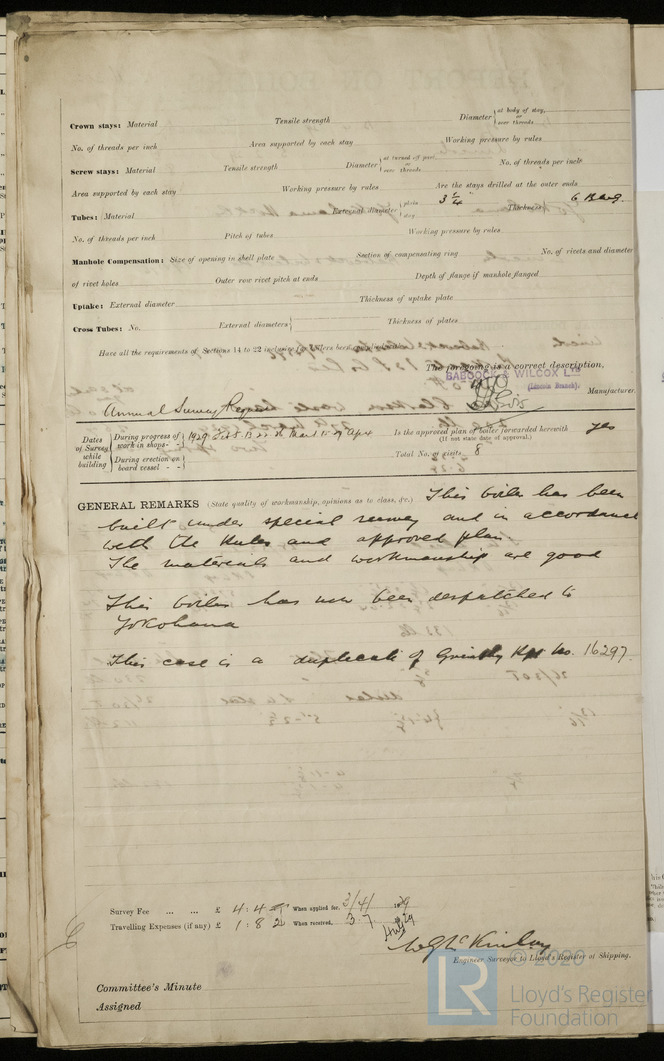 Crown stays: Material Tensile strength Diameter at body of stay, or over threads
No. of threads per inch Area supported by each stay Working pressure by rules
Screw stays: Material Tensile strength Diameter at turned off part, or over threads No. of threads per inch
Area supported by each stay Working pressure by rules Are the stays drilled at the outer ends
Tubes: Material External diameter plain stay 3 1/4" Thickness 6 B.W.G.
No. of threads per inch Pitch of tubes Working pressure by rules
Manhole Compensation: Size of opening in shell plate Section of compensating ring No. of rivets and diameter
of rivet holes Outer row rivet pitch at ends Depth of flange if manhole flanged
Uptake: External diameter Thickness of uptake plate
Cross Tubes: No. External diameters Thickness of plates
Have all the requirements of Sections 14 to 22 inclusive for boilers been
The foregoing is a correct description,
BABCOCK & WILCOX LTD
(Lincoln Branch).
Manufacturer.
Annual Survey Request
Dates of Survey while building
During progress of work in shops - - 1929
During erection on board vessel - - -
Is the approved plan of boiler forwarded herewith yes
(If not state date of approval.)
Total No. of visits 8
GENERAL REMARKS (State quality of workmanship, opinions as to class, &c.) This boiler has been
built under special survey and in accordance
with the Rules and approved plan.
The materials and workmanship are good
This boiler has now been despatched to
Yokohama
This case is a duplicate of Grimsby Rpt No. 16297.
Survey Fee ... ... £ 4 : 4 When applied for, 3/4/1929
Travelling Expenses (if any) £ 1 : 8 2 When received, 3.7
Engineer Surveyor to Lloyd's Register of Shipping.
Committee's Minute
Assigned
© 2020
LR
Lloyd's Register
Foundation